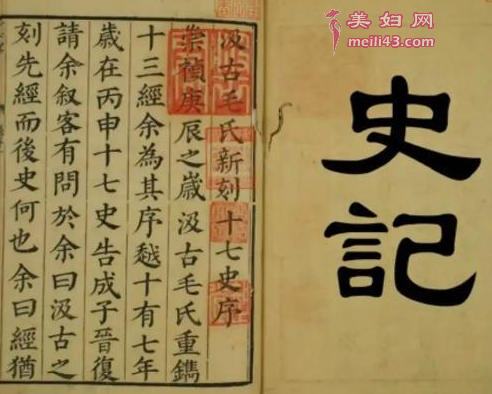 汲古毛氏新刻十七史序
崇禎庚辰之歲汲古毛氏重鐫
十三經余為其序越十有七年
歲在丙申十七史告成子晉復
請余叙客有問於余曰汲古之
刻先經而後史何也余曰經猶
史記
美妇网
meili43.com